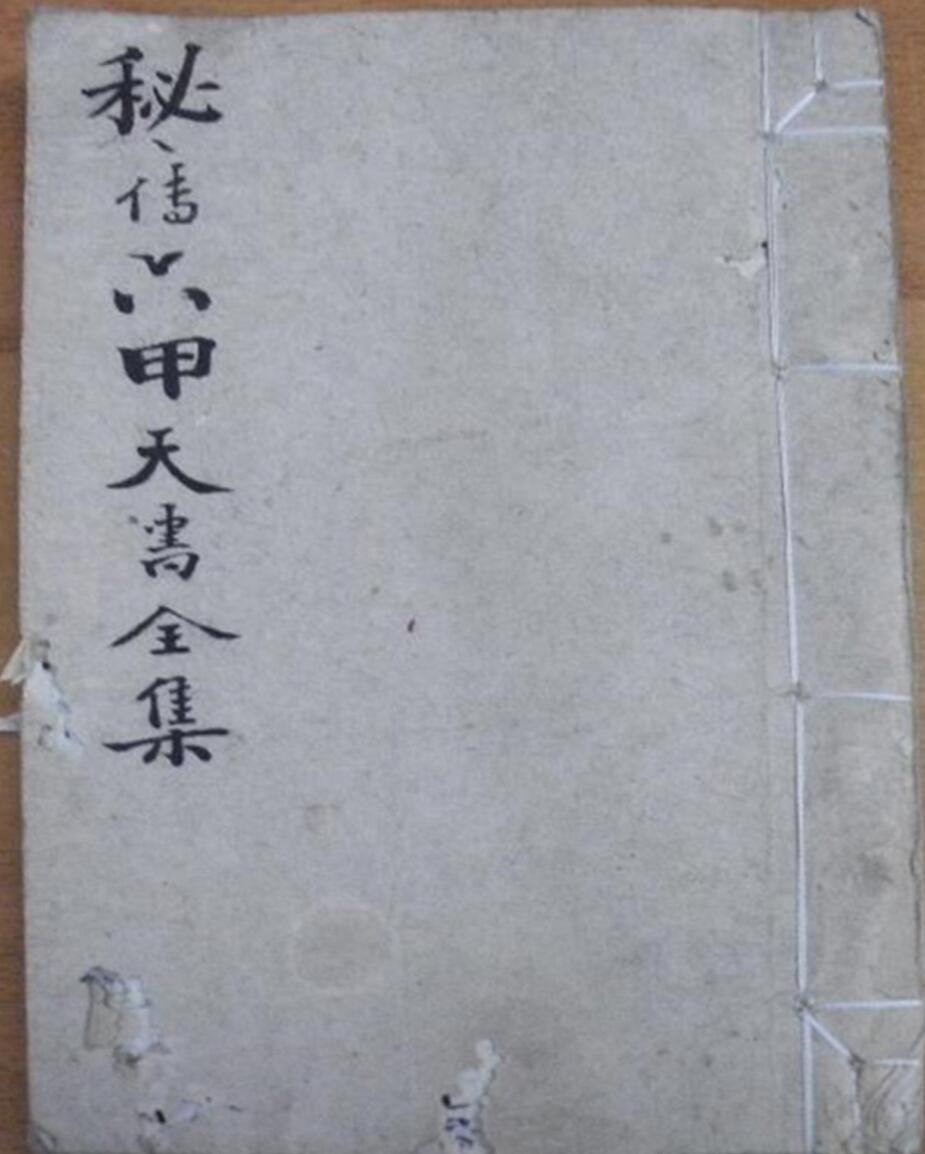 秘傳六甲天書全集